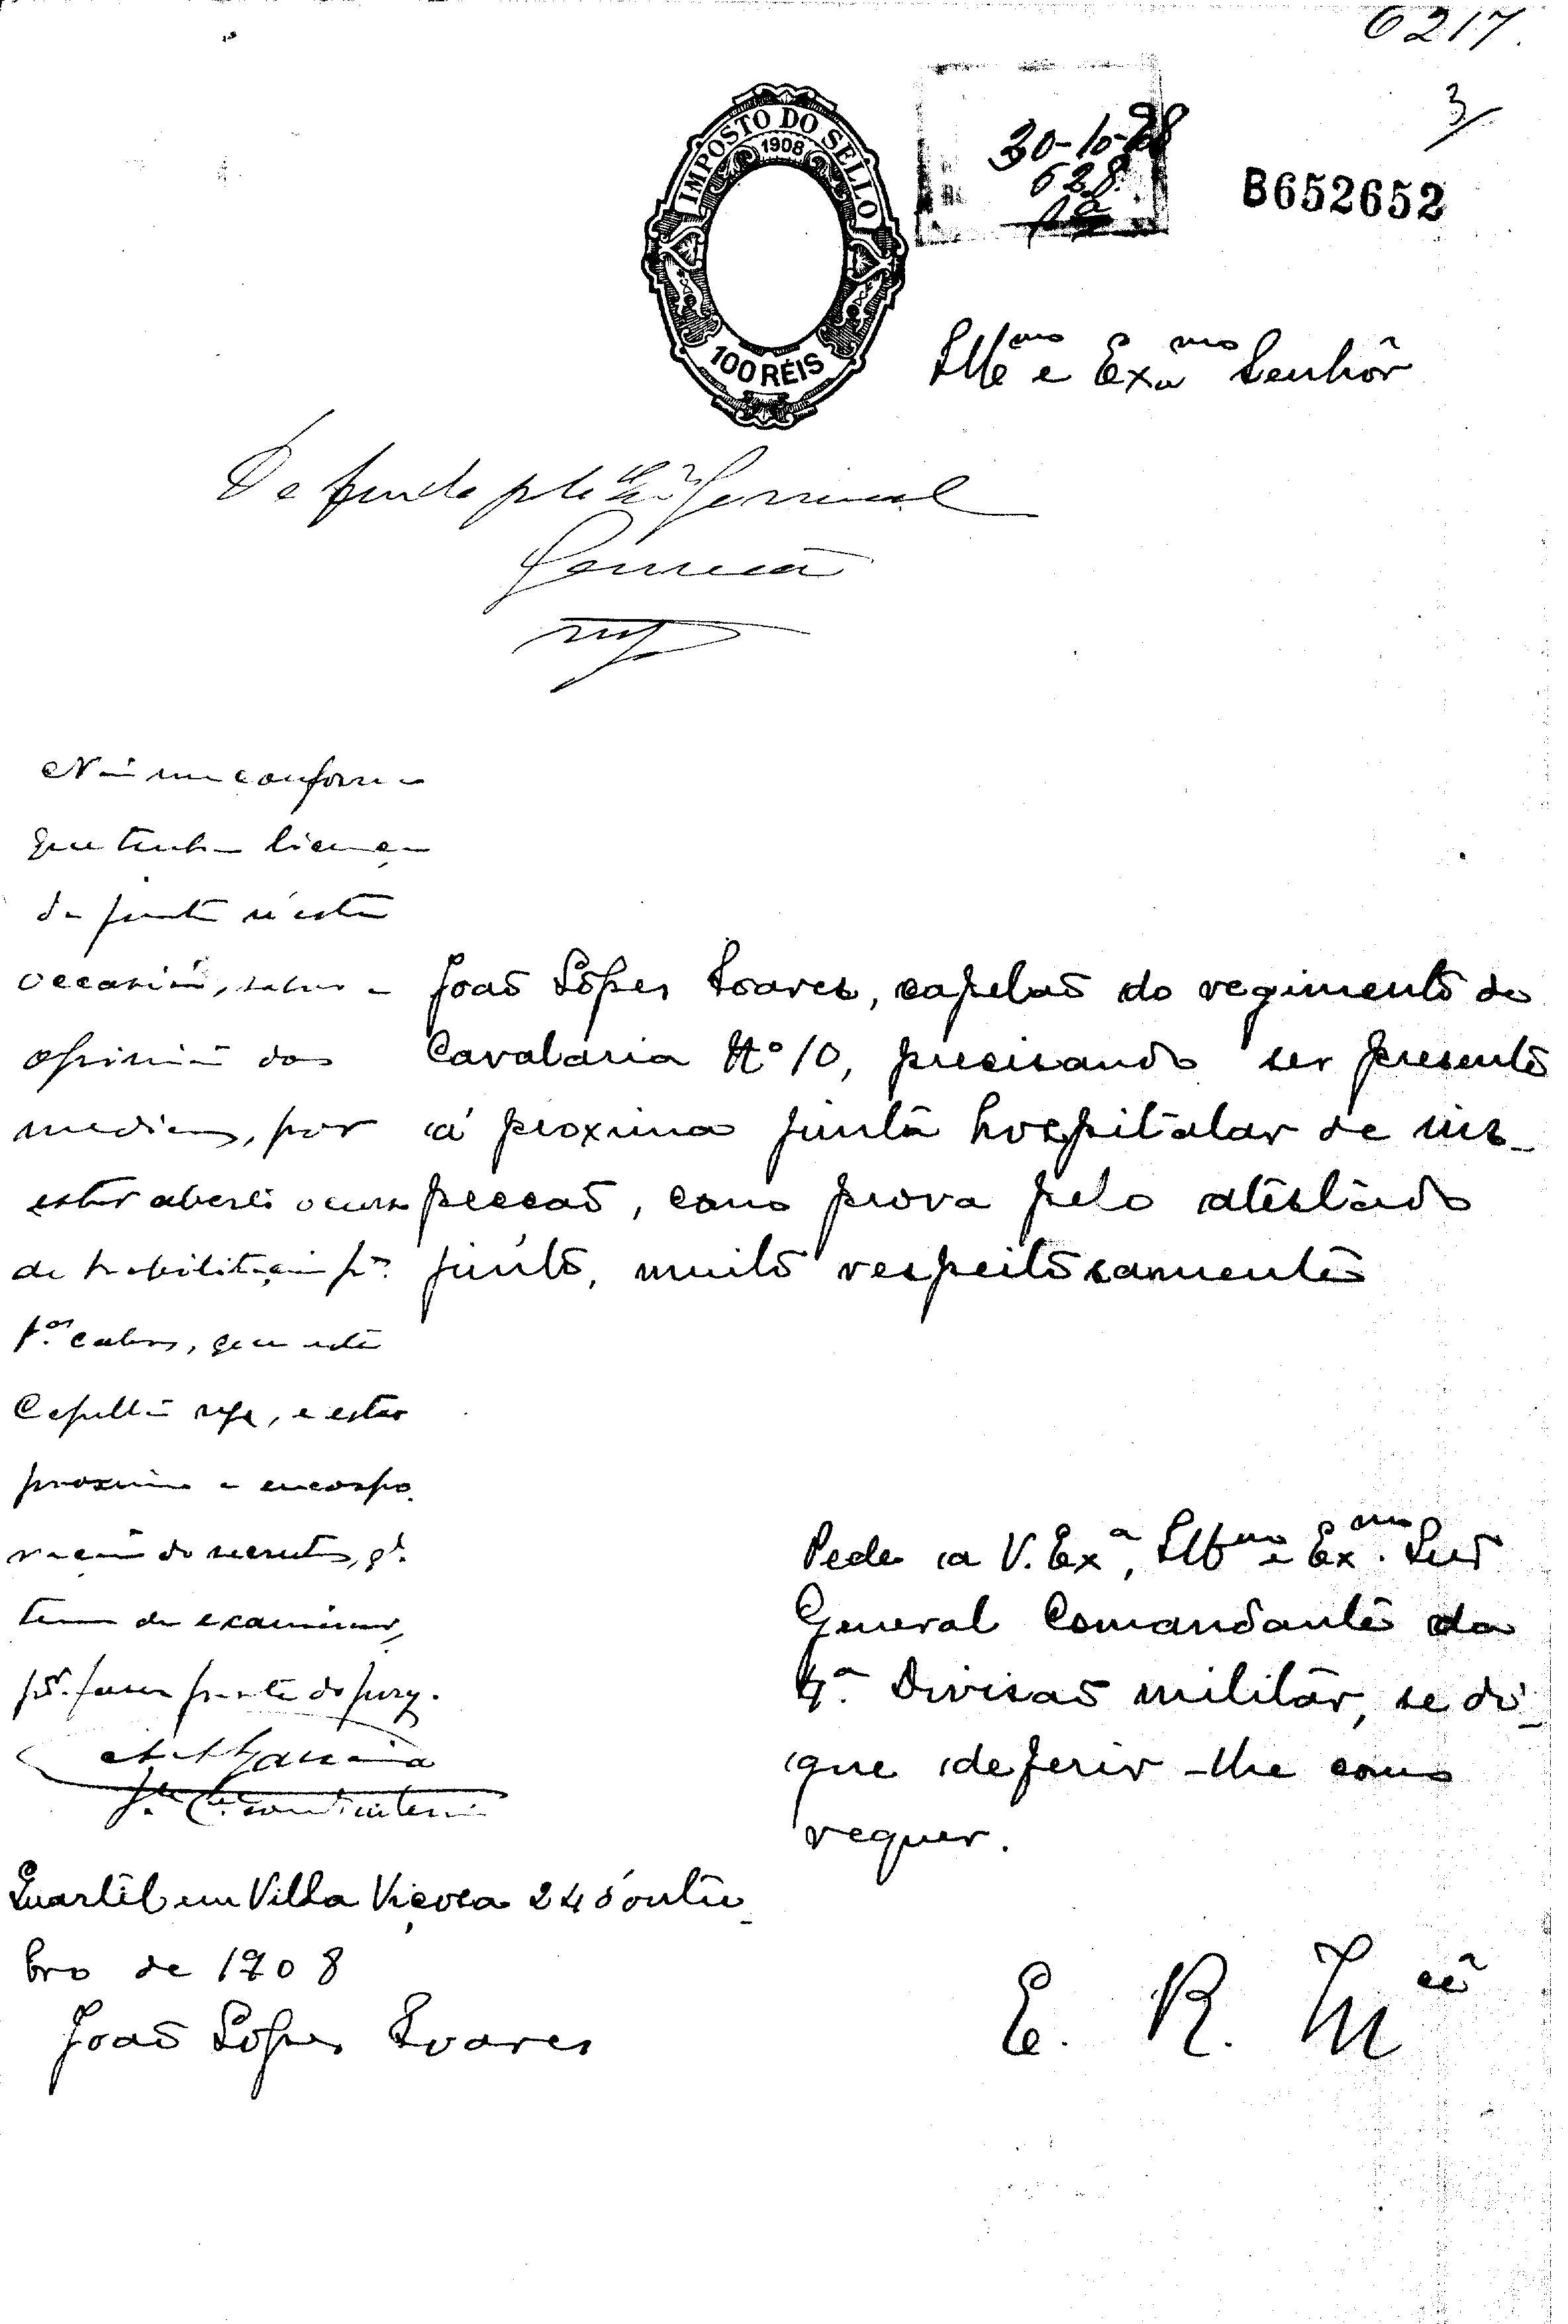 6217.
3/
IMPOSTO DO SELLO
1908
100 RÉIS
30-10-08
628
1ª
B652652
Illmo e Exmo Senhôr
Deferido pelo Exmo General
Não me conformo
que tenha licença
da junta n'esta
occasião, salvo a
opinião dos
medicos, por
estar aberto o curso
de habilitação pa.
1.os cabos, que este
Capellão rege, e estar
proxima a encorpo
ração de recrutas, qe.
tem de examinar,
por fazer parte do jury.
João Lôpes Soares, capelaõ do regimento de
Cavalaria Nº 10, precisando ser presente
á proxima junta hospitalar de ins-
pecçaõ, como prova pelo atestado
junto, muito respeitosamente
Pede a V. Exª, Illmo e Exmo. Snr
General Comandante da
4ª Divisaõ militar, se di-
gne deferir-lhe como
requer.
Quartel em Villa Viçosa 24 d'outu-
bro de 1908
João Lopes Soares
E. R. Mcê